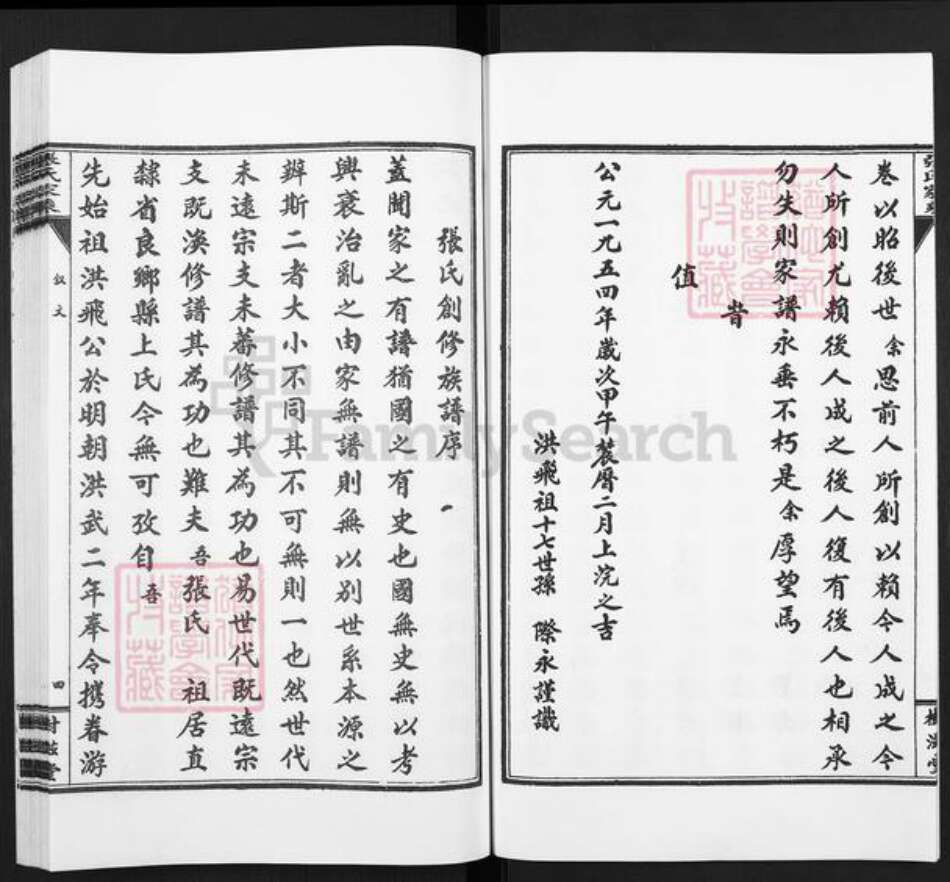 卷以昭後世余思前人所創以賴令人成之今
人所創尤賴後人成之後人復有後人也相承
勿失則家譜永垂不朽是余厚望焉
昔
值
公元一九五四年歲次甲午蓂曆二月上浣之吉
洪飛祖十七世孫 際永謹識
張氏創修族譜序
蓋聞家之有譜猶國之有史也國無史無以考
興衰治亂之由家無譜則無以別世系本源之
辨斯二者大小不同其不可無則一也然世代
未遠宗支未蕃修譜其為功也易世代既遠宗
支既渙修譜其為功也難夫吾張氏 祖居直
隸省良鄉縣上氏今無可攷自吾
先始祖洪飛公於明朝洪武二年奉令攜眷游
叙文
四
FamilySearch